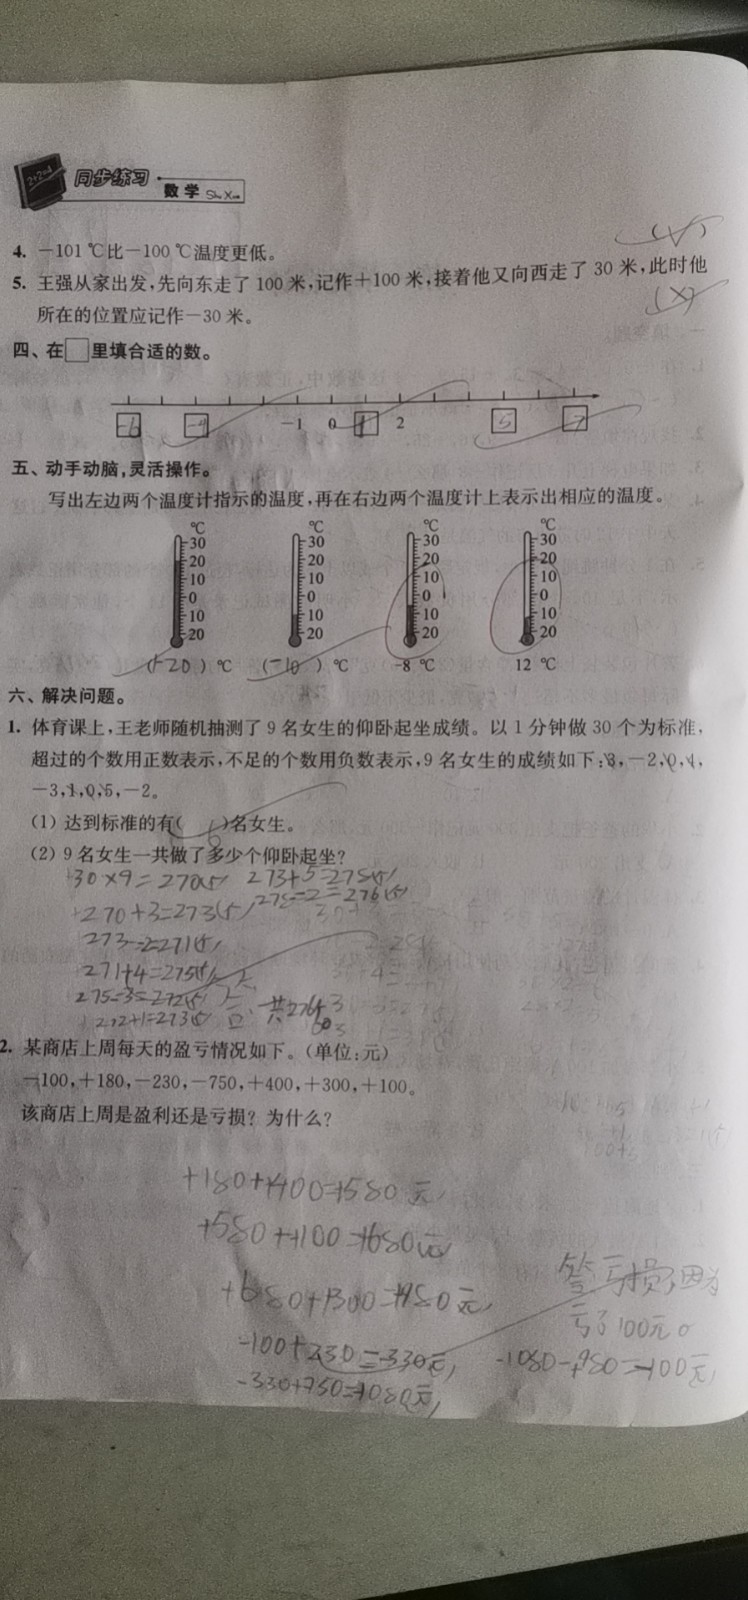 同步练习 数学
4. －101 ℃比－100 ℃温度更低。 (√)
5. 王强从家出发,先向东走了 100 米,记作＋100 米,接着他又向西走了 30 米,此时他
所在的位置应记作－30 米。 (×)
四、在□里填合适的数。
-6 -4 －1 0 1 2 5 7
五、动手动脑,灵活操作。
写出左边两个温度计指示的温度,再在右边两个温度计上表示出相应的温度。
℃ ℃ ℃ ℃
30 30 30 30
20 20 20 20
10 10 10 10
0 0 0 0
10 10 10 10
20 20 20 20
(-20) ℃ (-10) ℃ -8 ℃ 12 ℃
六、解决问题。
1. 体育课上,王老师随机抽测了 9 名女生的仰卧起坐成绩。以 1 分钟做 30 个为标准,
超过的个数用正数表示,不足的个数用负数表示,9 名女生的成绩如下:3,－2,0,4,
－3,1,0,5,－2。
(1) 达到标准的有( 6 )名女生。
(2) 9 名女生一共做了多少个仰卧起坐?
30×9=270(个) 273+5=275(个)
270+3=273(个) 275-2=276(个)
273-2=271(个)
271+4=275(个)
275-3=272(个)
272+1=273(个) 共276
2. 某商店上周每天的盈亏情况如下。(单位:元)
－100,＋180,－230,－750,＋400,＋300,＋100。
该商店上周是盈利还是亏损? 为什么?
+180+400=+580元
+580+100=+680元
+680+300=+980元
答亏损,因为
亏了100元。
-100+230=-330元
-1080-+980=-100元
-330+750=-1080元